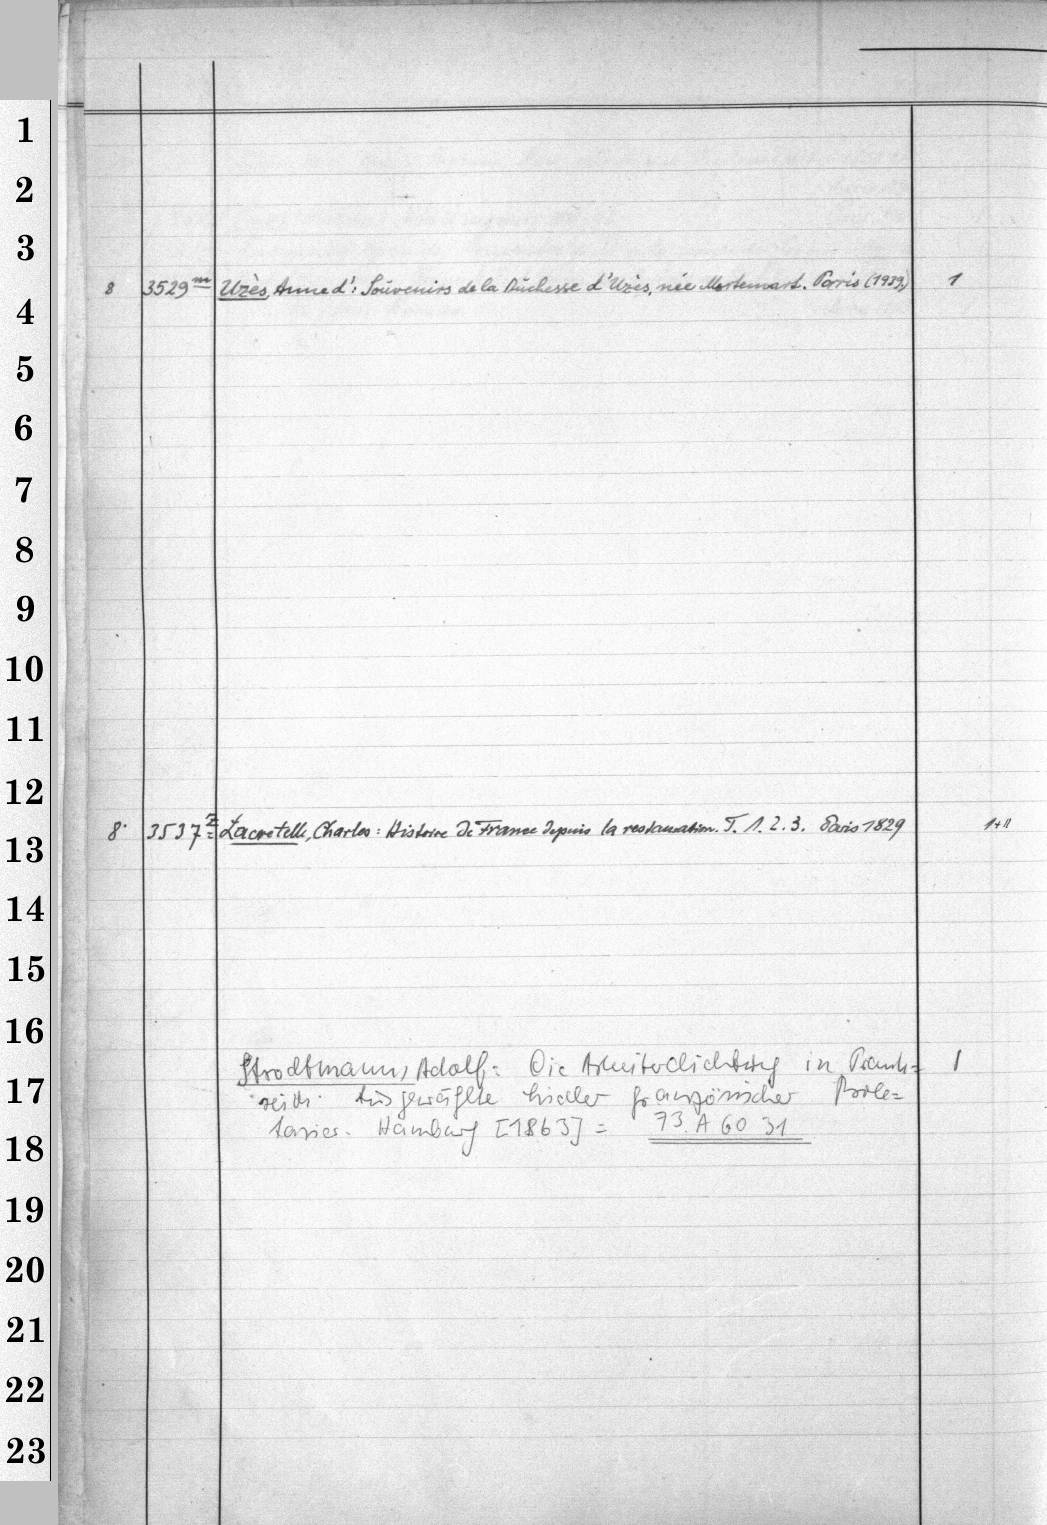 1
2
3
8 3529 m Uzès, Anne d': Souvenirs de la Duchesse d'Uzès, née Mortemart. Paris (1939) 1
4
5
6
7
8
9
10
11
12
8° 3537 Lacretelle, Charles: Histoire de France depuis la restauration. T. 1. 2. 3. Paris 1829 1+11
13
14
15
16
Strodtmann, Adolf: Die Arbeiterdichtung in Frank= 1
17
reich. Ausgewählte Lieder französischer Prole=
tarier. Hamburg [1863] = 73. A 60 31
18
19
20
21
22
23